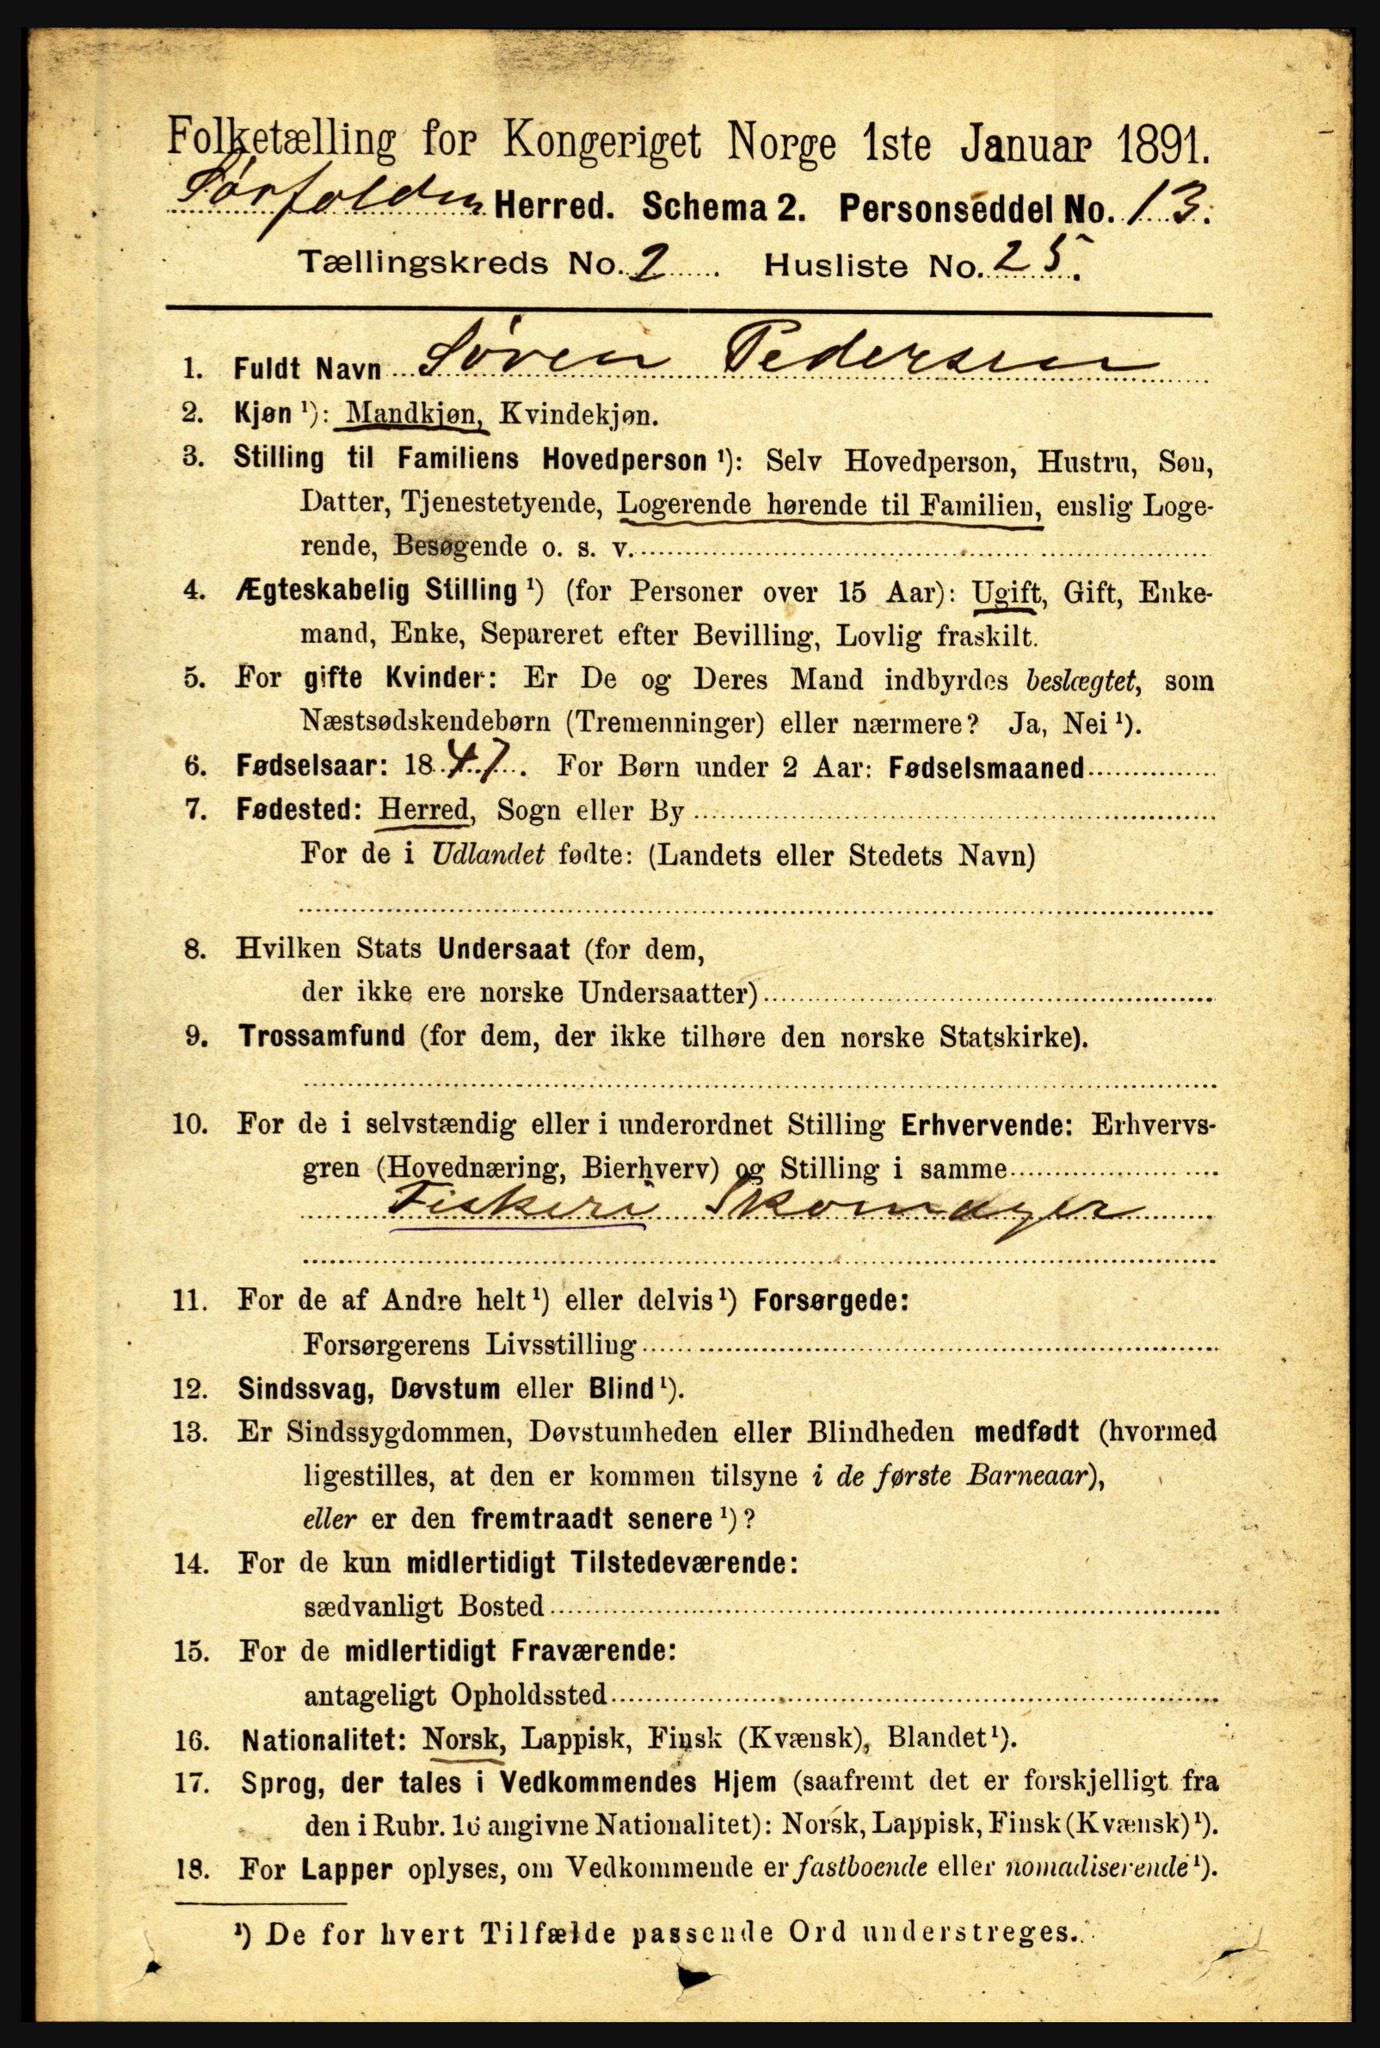 Folketælling for Kongeriget Norge 1ste Januar 1891.
Sørfolden Herred. Schema 2. Personseddel No. 13.
Tællingskreds No. 2 Husliste No. 25.
1. Fuldt Navn Søren Pedersen
2. Kjøn ¹): Mandkjøn, Kvindekjøn.
3. Stilling til Familiens Hovedperson ¹): Selv Hovedperson, Hustru, Søn,
Datter, Tjenestetyende, Logerende hørende til Familien, enslig Loge-
rende, Besøgende o. s. v.
4. Ægteskabelig Stilling ¹) (for Personer over 15 Aar): Ugift, Gift, Enke-
mand, Enke, Separeret efter Bevilling, Lovlig fraskilt.
5. For gifte Kvinder: Er De og Deres Mand indbyrdes beslægtet, som
Næstsødskendebørn (Tremenninger) eller nærmere? Ja, Nei ¹).
6. Fødselsaar: 1847. For Børn under 2 Aar: Fødselsmaaned
7. Fødested: Herred, Sogn eller By
For de i Udlandet fødte: (Landets eller Stedets Navn)
8. Hvilken Stats Undersaat (for dem,
der ikke ere norske Undersaatter)
9. Trossamfund (for dem, der ikke tilhøre den norske Statskirke).
10. For de i selvstændig eller i underordnet Stilling Erhvervende: Erhvervs-
gren (Hovednæring, Bierhverv) og Stilling i samme
Fiskeri Skomager
11. For de af Andre helt ¹) eller delvis ¹) Forsørgede:
Forsørgerens Livsstilling
12. Sindssvag, Døvstum eller Blind ¹).
13. Er Sindssygdommen, Døvstumheden eller Blindheden medfødt (hvormed
ligestilles, at den er kommen tilsyne i de første Barneaar),
eller er den fremtraadt senere ¹)?
14. For de kun midlertidigt Tilstedeværende:
sædvanligt Bosted
15. For de midlertidigt Fraværende:
antageligt Opholdssted
16. Nationalitet: Norsk, Lappisk, Finsk (Kvænsk), Blandet ¹).
17. Sprog, der tales i Vedkommendes Hjem (saafremt det er forskjelligt fra
den i Rubr. 16 angivne Nationalitet): Norsk, Lappisk, Finsk (Kvænsk) ¹).
18. For Lapper oplyses, om Vedkommende er fastboende eller nomadiserende ¹).
¹) De for hvert Tilfælde passende Ord understreges.